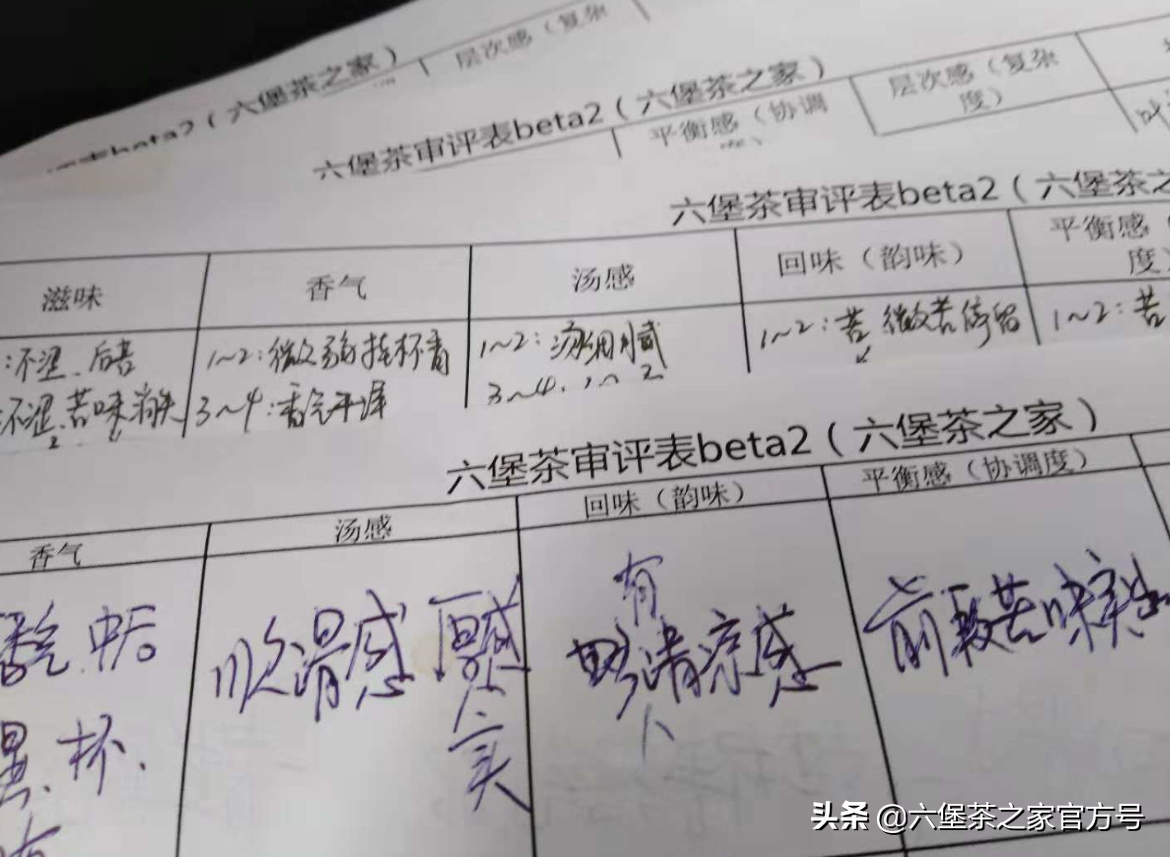 层次感（复杂
六堡茶之家）
beta2（六堡茶之家）
六堡茶审评表beta2（六堡茶之家）
平衡感（协调
层次感（复杂
度）
六堡茶审评表beta2（六堡茶之
滋味
香气
汤感
回味（韵味）
平衡感
度）
不涩、后苦
1~2：微
挂杯香
1~2：
1~2：苦 微苦停留
1~2：苦
不涩、苦味消失
3~4：香气平淡
3~4：1~2
六堡茶审评表beta2（六堡茶之家）
香气
汤感
回味（韵味）
平衡感（协调度）
香气
顺滑感 厚感
实
有
清凉感
前段苦味突出
杯
头条 @六堡茶之家官方号